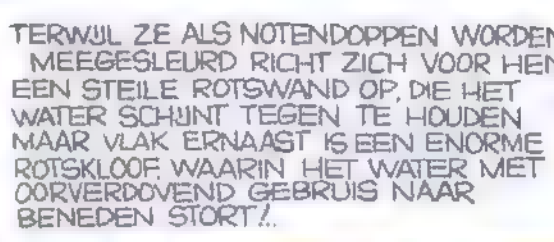 TERWIJL ZE ALS NOTENDOPPEN WORDEN
MEEGESLEURD RICHT ZICH VOOR HEN
EEN STEILE ROTSWAND OP, DIE HET
WATER SCHIJNT TEGEN TE HOUDEN
MAAR VLAK ERNAAST IS EEN ENORME
ROTSKLOOF, WAARIN HET WATER MET
OORVERDOVEND GEBRUIS NAAR
BENEDEN STORT!..